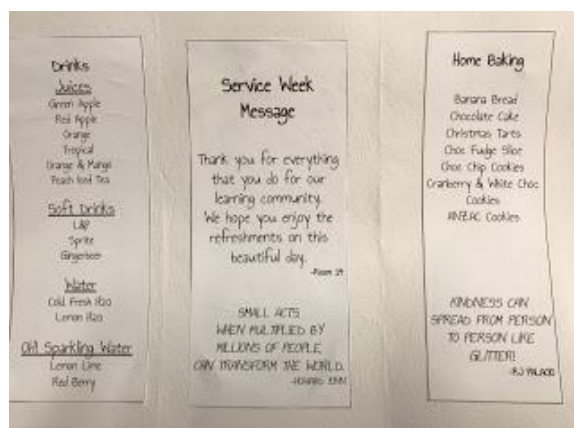 Drinks
Juices
Green Apple
Red Apple
Orange
Tropical
Orange & Mango
Peach Iced Tea
Soft Drinks
L&P
Sprite
Gingerbeer
Water
Cold Fresh H2O
Lemon H2O
Oh! Sparkling Water
Lemon Lime
Red Berry
Service Week
Message
Thank you for everything
that you do for our
learning community.
We hope you enjoy the
refreshments on this
beautiful day.
-Room 29
SMALL ACTS
WHEN MULTIPLIED BY
MILLIONS OF PEOPLE,
CAN TRANSFORM THE WORLD.
-HOWARD ZINN
Home Baking
Banana Bread
Chocolate Cake
Christmas Tarts
Choc Fudge Slice
Choc Chip Cookies
Cranberry & White Choc
Cookies
ANZAC Cookies
KINDNESS CAN
SPREAD FROM PERSON
TO PERSON LIKE
GLITTER!
-RJ PALACIO